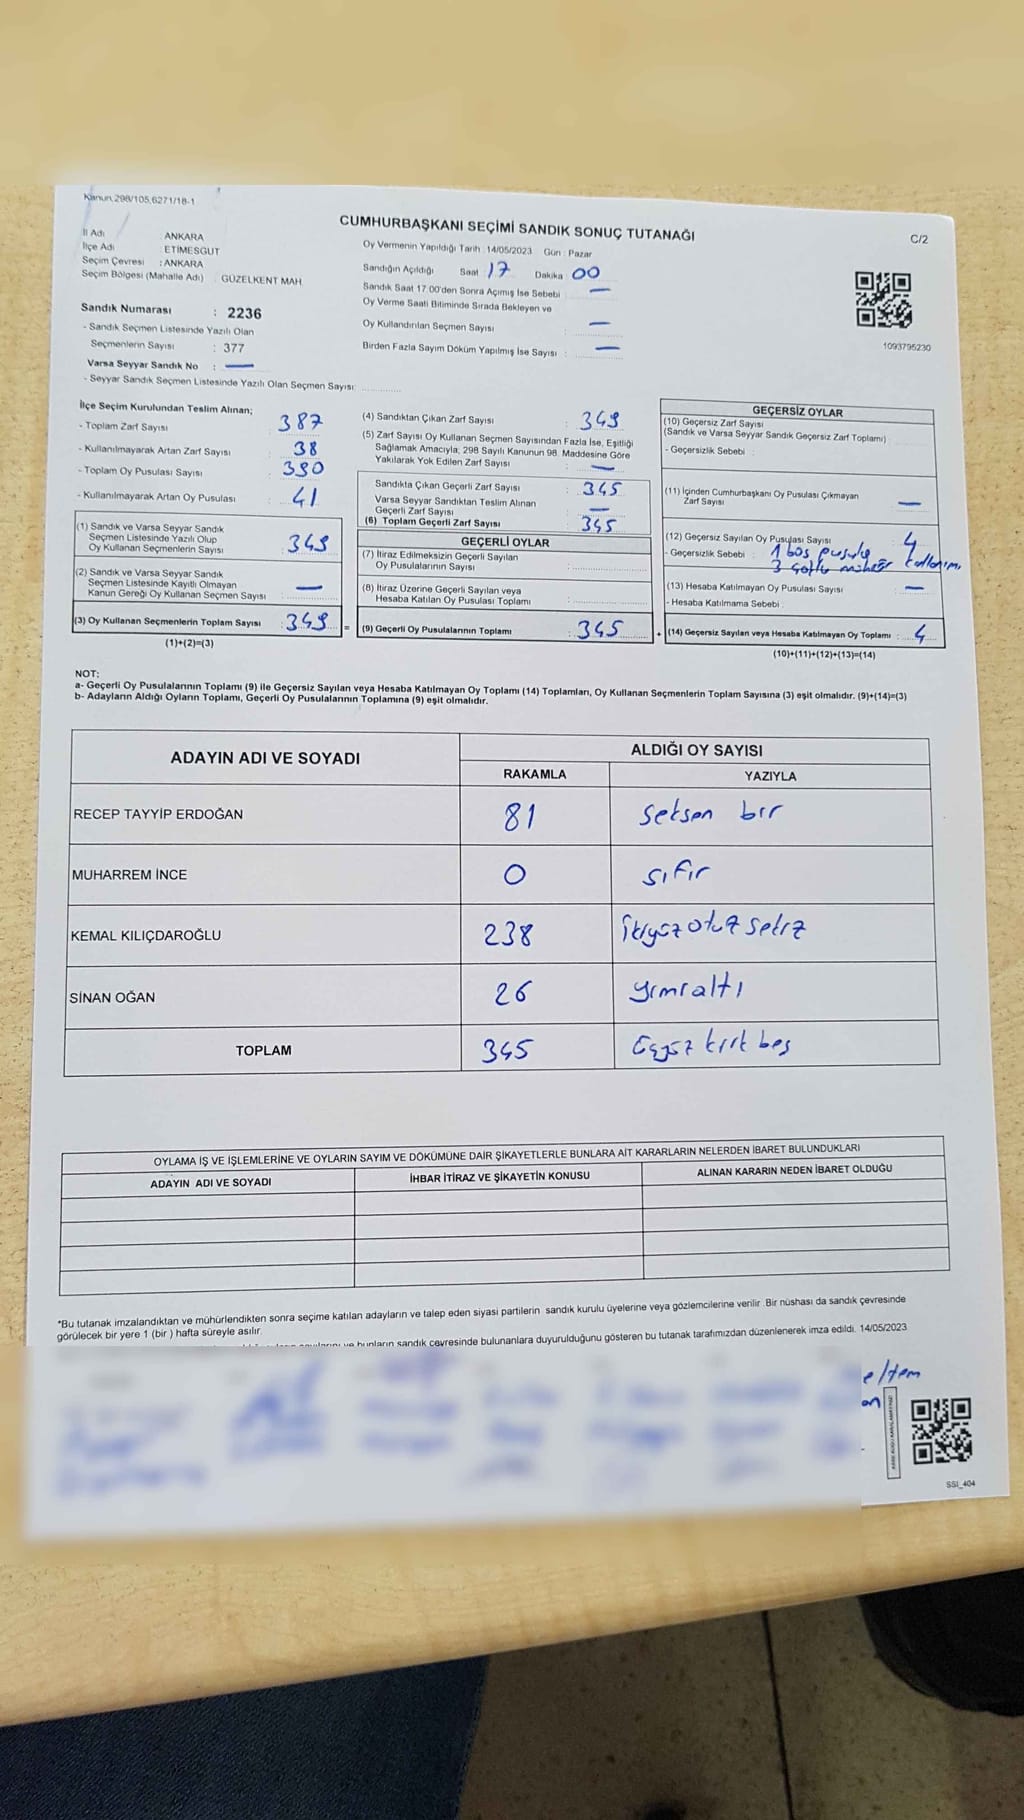 Kanun.298/105,6271/18-1
CUMHURBAŞKANI SEÇİMİ SANDIK SONUÇ TUTANAĞI
C/2
İl Adı ANKARA
İlçe Adı : ETİMESGUT
Seçim Çevresi : ANKARA
Seçim Bölgesi (Mahalle Adı) : GÜZELKENT MAH
Sandık Numarası : 2236
- Sandık Seçmen Listesinde Yazılı Olan
Seçmenlerin Sayısı : 377
Varsa Seyyar Sandık No : —
- Seyyar Sandık Seçmen Listesinde Yazılı Olan Seçmen Sayısı:
Oy Vermenin Yapıldığı Tarih : 14/05/2023 Gün : Pazar
Sandığın Açıldığı Saat 17 Dakika 00
Sandık Saat 17.00'den Sonra Açımış İse Sebebi —
Oy Verme Saati Bitiminde Sırada Bekleyen ve
Oy Kullandırılan Seçmen Sayısı : —
Birden Fazla Sayım Döküm Yapılmış İse Sayısı : —
1093795230
İlçe Seçim Kurulundan Teslim Alınan;
- Toplam Zarf Sayısı : 387
- Kullanılmayarak Artan Zarf Sayısı : 38
- Toplam Oy Pusulası Sayısı : 390
- Kullanılmayarak Artan Oy Pusulası : 41
(1) Sandık ve Varsa Seyyar Sandık
Seçmen Listesinde Yazılı Olup
Oy Kullanan Seçmenlerin Sayısı : 349
(2) Sandık ve Varsa Seyyar Sandık
Seçmen Listesinde Kayıtlı Olmayan
Kanun Gereği Oy Kullanan Seçmen Sayısı : —
(3) Oy Kullanan Seçmenlerin Toplam Sayısı : 349 =
(1)+(2)=(3)
(4) Sandıktan Çıkan Zarf Sayısı : 349
(5) Zarf Sayısı Oy Kullanan Seçmen Sayısından Fazla İse, Eşitliği
Sağlamak Amacıyla; 298 Sayılı Kanunun 98. Maddesine Göre
Yakılarak Yok Edilen Zarf Sayısı : —
Sandıkta Çıkan Geçerli Zarf Sayısı : 345
Varsa Seyyar Sandıktan Teslim Alınan
Geçerli Zarf Sayısı : —
(6) Toplam Geçerli Zarf Sayısı : 345
GEÇERLİ OYLAR
(7) İtiraz Edilmeksizin Geçerli Sayılan
Oy Pusulalarının Sayısı :
(8) İtiraz Üzerine Geçerli Sayılan veya
Hesaba Katılan Oy Pusulası Toplamı :
(9) Geçerli Oy Pusulalarının Toplamı : 345 +
GEÇERSİZ OYLAR
(10) Geçersiz Zarf Sayısı
(Sandık ve Varsa Seyyar Sandık Geçersiz Zarf Toplamı) :
- Geçersizlik Sebebi :
(11) İçinden Cumhurbaşkanı Oy Pusulası Çıkmayan
Zarf Sayısı : —
(12) Geçersiz Sayılan Oy Pusulası Sayısı : 4
- Geçersizlik Sebebi : 1 boş pusula
3 mühür kullanımı
(13) Hesaba Katılmayan Oy Pusulası Sayısı : —
- Hesaba Katılmama Sebebi :
(14) Geçersiz Sayılan veya Hesaba Katılmayan Oy Toplamı : 4
(10)+(11)+(12)+(13)=(14)
NOT:
a- Geçerli Oy Pusulalarının Toplamı (9) ile Geçersiz Sayılan veya Hesaba Katılmayan Oy Toplamı (14) Toplamları, Oy Kullanan Seçmenlerin Toplam Sayısına (3) eşit olmalıdır. (9)+(14)=(3)
b- Adayların Aldığı Oyların Toplamı, Geçerli Oy Pusulalarının Toplamına (9) eşit olmalıdır.
ADAYIN ADI VE SOYADI ALDIĞI OY SAYISI
RAKAMLA YAZIYLA
RECEP TAYYİP ERDOĞAN 81 seksen bir
MUHARREM İNCE 0 sıfır
KEMAL KILIÇDAROĞLU 238 ikiyüz otuz sekiz
SİNAN OĞAN 26 yirmialtı
TOPLAM 345 üçyüz kırk beş
OYLAMA İŞ VE İŞLEMLERİNE VE OYLARIN SAYIM VE DÖKÜMÜNE DAİR ŞİKAYETLERLE BUNLARA AİT KARARLARIN NELERDEN İBARET BULUNDUKLARI
ADAYIN ADI VE SOYADI İHBAR İTİRAZ VE ŞİKAYETİN KONUSU ALINAN KARARIN NEDEN İBARET OLDUĞU
*Bu tutanak imzalandıktan ve mühürlendikten sonra seçime katılan adayların ve talep eden siyasi partilerin sandık kurulu üyelerine veya gözlemcilerine verilir .Bir nüshası da sandık çevresinde
görülecek bir yere 1 (bir ) hafta süreyle asılır
ve bunların sandık çevresinde bulunanlara duyurulduğunu gösteren bu tutanak tarafımızdan düzenlenerek imza edildi. 14/05/2023
SSİ_404